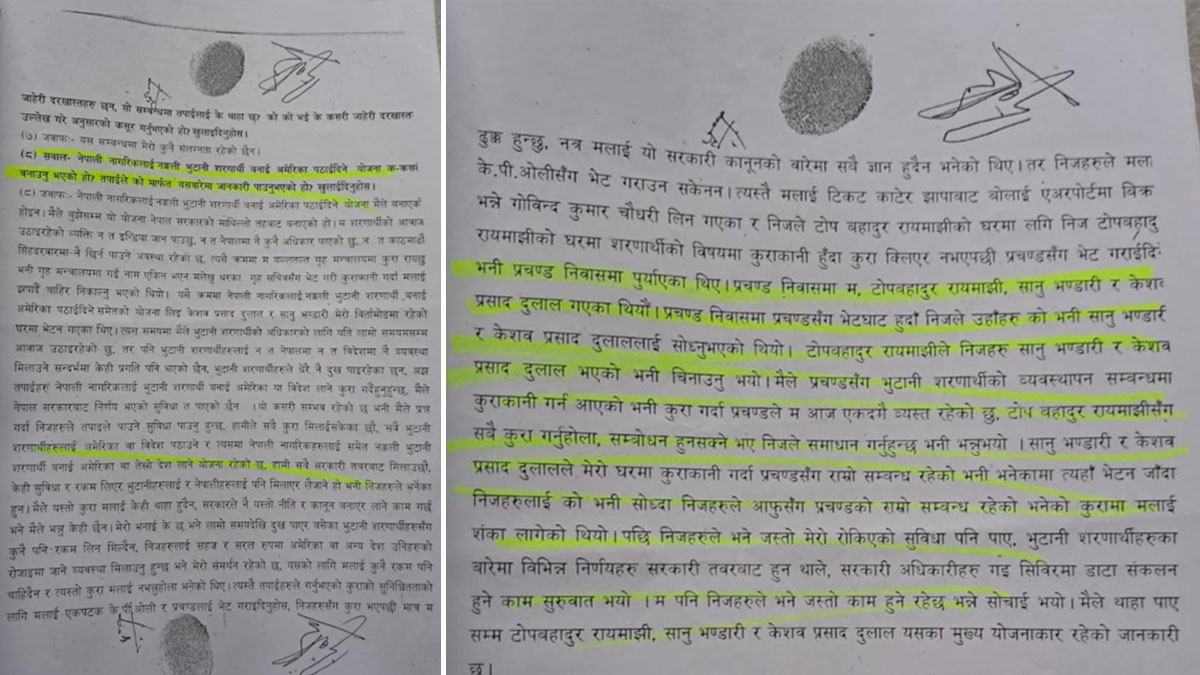 जाहेरी दरखास्तहरु छन्, सो सम्बन्धमा तपाईलाई के थाहा छ? को को भई के कसरी जाहेरी दरखास्त
उल्लेख गरे अनुसारको कसूर गर्नुभएको हो? खुलाइदिनुहोस।
(७) जवाफः- यस सम्बन्धमा मेरो कुनै संलग्नता रहेको छैन।
(८) सवाल- नेपाली नागरिकलाई नक्कली भुटानी शरणार्थी बनाई अमेरिका पठाईदिने योजना क-कसले
बनाउनु भएको हो? तपाईले को मार्फत यसबारेमा जानकारी पाउनुभएको हो? खुलाईदिनुहोस।
(८) जवाफः- नेपाली नागरिकलाई नक्कली भुटानी शरणार्थी बनाई अमेरिका पठाईदिने योजना मैले बनाएको
होइन। मैले बुझेसम्म यो योजना नेपाल सरकारको माथिल्लो तहबाट बनाएको हो। म शरणार्थीको आवाज
उठाइरहेको व्यक्ति न त इन्डिया जान पाउछु, न त नेपालमा नै कुनै अधिकार पाएको छु, न त काठमाडौं
सिंहदरवारमा-नै छिर्न पाउने अवस्था रहेको छ, त्यसै क्रममा म गृह मन्त्रालयमा कुरा राख्छु
भनी गृह मन्त्रालयमा गई नाम एकिन भएन मलेखु थरका गृह सचिवसँग भेट गरी कुराकानी गर्दा मलाई
झपार्दै बाहिर निकाल्नु भएको थियो। यसै क्रममा नेपाली नागरिकलाई नक्कली भुटानी शरणार्थी बनाई
अमेरिका पठाईदिने समेतको योजना लिइ केशव प्रसाद दुलाल र सानु भण्डारी मेरो विर्तामोडमा रहेको
घरमा भेट्न गएका थिए। त्यस समयमा मैले भुटानी शरणार्थीको अधिकारको लागि यति लामो समयसम्म
आवाज उठाइरहेको छु, तर पनि भुटानी शरणार्थीहरुलाई न त नेपालमा न त विदेशमा नै व्यवस्था
मिलाउने सन्दर्भमा केही प्रगति पनि भएको छैन, भुटानी शरणार्थीहरुले धेरै नै दुख पाइरहेका छन, अझ
तपाईहरु नेपाली नागरिकलाई भुटानी शरणार्थी बनाई अमेरिका वा विदेश लाने कुरा गर्दैहुनुहुन्छ, मैले
नेपाल सरकारबाट निर्णय भएको सुविधा त पाएको छैन । यो कसरी सम्भव रहेको छ भनी मैले प्रश्न
गर्दा निजहरुले तपाइले पाउने सुविधा पाउनु हुन्छ, हामीले सवै कुरा मिलाईसकेका छौ, सवै भुटानी
शरणार्थीहरुलाई अमेरिका वा विदेश पठाउने र त्यसमा नेपाली नागरिकहरुलाई समेत नक्कली भुटानी
शरणार्थी बनाई अमेरिका वा तेस्रो देश लाने योजना रहेको छ, हामी सवै सरकारी तवरबाट मिलाउछौं,
केही सुविधा र रकम लिएर भुटानीहरुलाई र नेपालीहरुलाई पनि मिलाएर लैजाने हो भनी निजहरुले भनेका
हुन। मैले यस्तो कुरा मलाई केही थाहा हुदैन, सरकारले नै यस्तो नीति र कानून बनाएर लाने काम गर्छ
भने मैले भन्नु केही छैन। मेरो भनाई के छ भने लामो समयदेखि दुख पाएर वसेका भुटानी शरणार्थीहरुसँग
कुनै पनि रकम लिन मिल्दैन, निजहरुलाई सहज र सरल रुपमा अमेरिका वा अन्य देश उनिहरुको
रोजाइमा जाने व्यवस्था मिलाउनु हुन्छ भने मेरो समर्थन रहेको छ, यसको लागि मलाई कुनै रकम पनि
चाहिदैन र त्यस्तो कुरा मलाई नभन्नुहोला भनेको थिए। त्यस्तै तपाईहरुले गर्नुभएको कुराको सुनिश्चितताको
लागि मलाई एकपटक के.पी.ओली र प्रचण्डलाई भेट गराइदिनुहोस, निजहरुसँग कुरा भएपछी मात्र म
ढुक्क हुन्छु, नत्र मलाई यो सरकारी कानूनको वारेमा सवै ज्ञान हुदैन भनेको थिए। तर निजहरुले मला
के.पी.ओलीसँग भेट गराउन सकेनन। त्यस्तै मलाई टिकट काटेर झापाबाट बोलाई एअरपोर्टमा विक्र
भन्ने गोविन्द कुमार चौधरी लिन गएका र निजले टोप बहादुर रायमाझीको घरमा लगि निज टोपबहादु
रायमाझीको घरमा शरणार्थीको विषयमा कुराकानी हुँदा कुरा क्लिएर नभएपछी प्रचण्डसँग भेट गराईदि
भनी प्रचण्ड निवासमा पुर्याएका थिए। प्रचण्ड निवासमा म, टोपबहादुर रायमाझी, सानु भण्डारी र केशव
प्रसाद दुलाल गएका थियौं। प्रचण्ड निवासमा प्रचण्डसँग भेटघाट हुदाँ निजले उहाँहरु को भनी सानु भण्डारी
र केशव प्रसाद दुलाललाई सोध्नुभएको थियो। टोपबहादुर रायमाझीले निजहरु सानु भण्डारी र केशव
प्रसाद दुलाल भएको भनी चिनाउनु भयो। मैले प्रचण्डसँग भुटानी शरणार्थीको व्यवस्थापन सम्बन्धमा
कुराकानी गर्न आएको भनी कुरा गर्दा प्रचण्डले म आज एकदमै व्यस्त रहेको छु, टोप बहादुर रायमाझीसँग
सवै कुरा गर्नुहोला, सम्बोधन हुनसक्ने भए निजले समाधान गर्नुहुन्छ भनी भन्नुभयो । सानु भण्डारी र केशव
प्रसाद दुलालले मेरो घरमा कुराकानी गर्दा प्रचण्डसँग राम्रो सम्बन्ध रहेको भनी भनेकामा त्यहाँ भेटन जाँदा
निजहरुलाई को भनी सोध्दा निजहरुले आफुसँग प्रचण्डको राम्रो सम्बन्ध रहेको भनेको कुरामा मलाई
शंका लागेको थियो। पछि निजहरुले भने जस्तो मेरो रोकिएको सुविधा पनि पाए, भुटानी शरणार्थीहरुका
वारेमा विभिन्न निर्णयहरु सरकारी तवरबाट हुन थाले, सरकारी अधिकारीहरु गइ सिविरमा डाटा संकलन
हुने काम सुरुवात भयो । म पनि निजहरुले भने जस्तो काम हुने रहेछ भन्ने सोचाई भयो। मैले थाहा पाए
सम्म टोपबहादुर रायमाझी, सानु भण्डारी र केशव प्रसाद दुलाल यसका मुख्य योजनाकार रहेको जानकारी
छ।